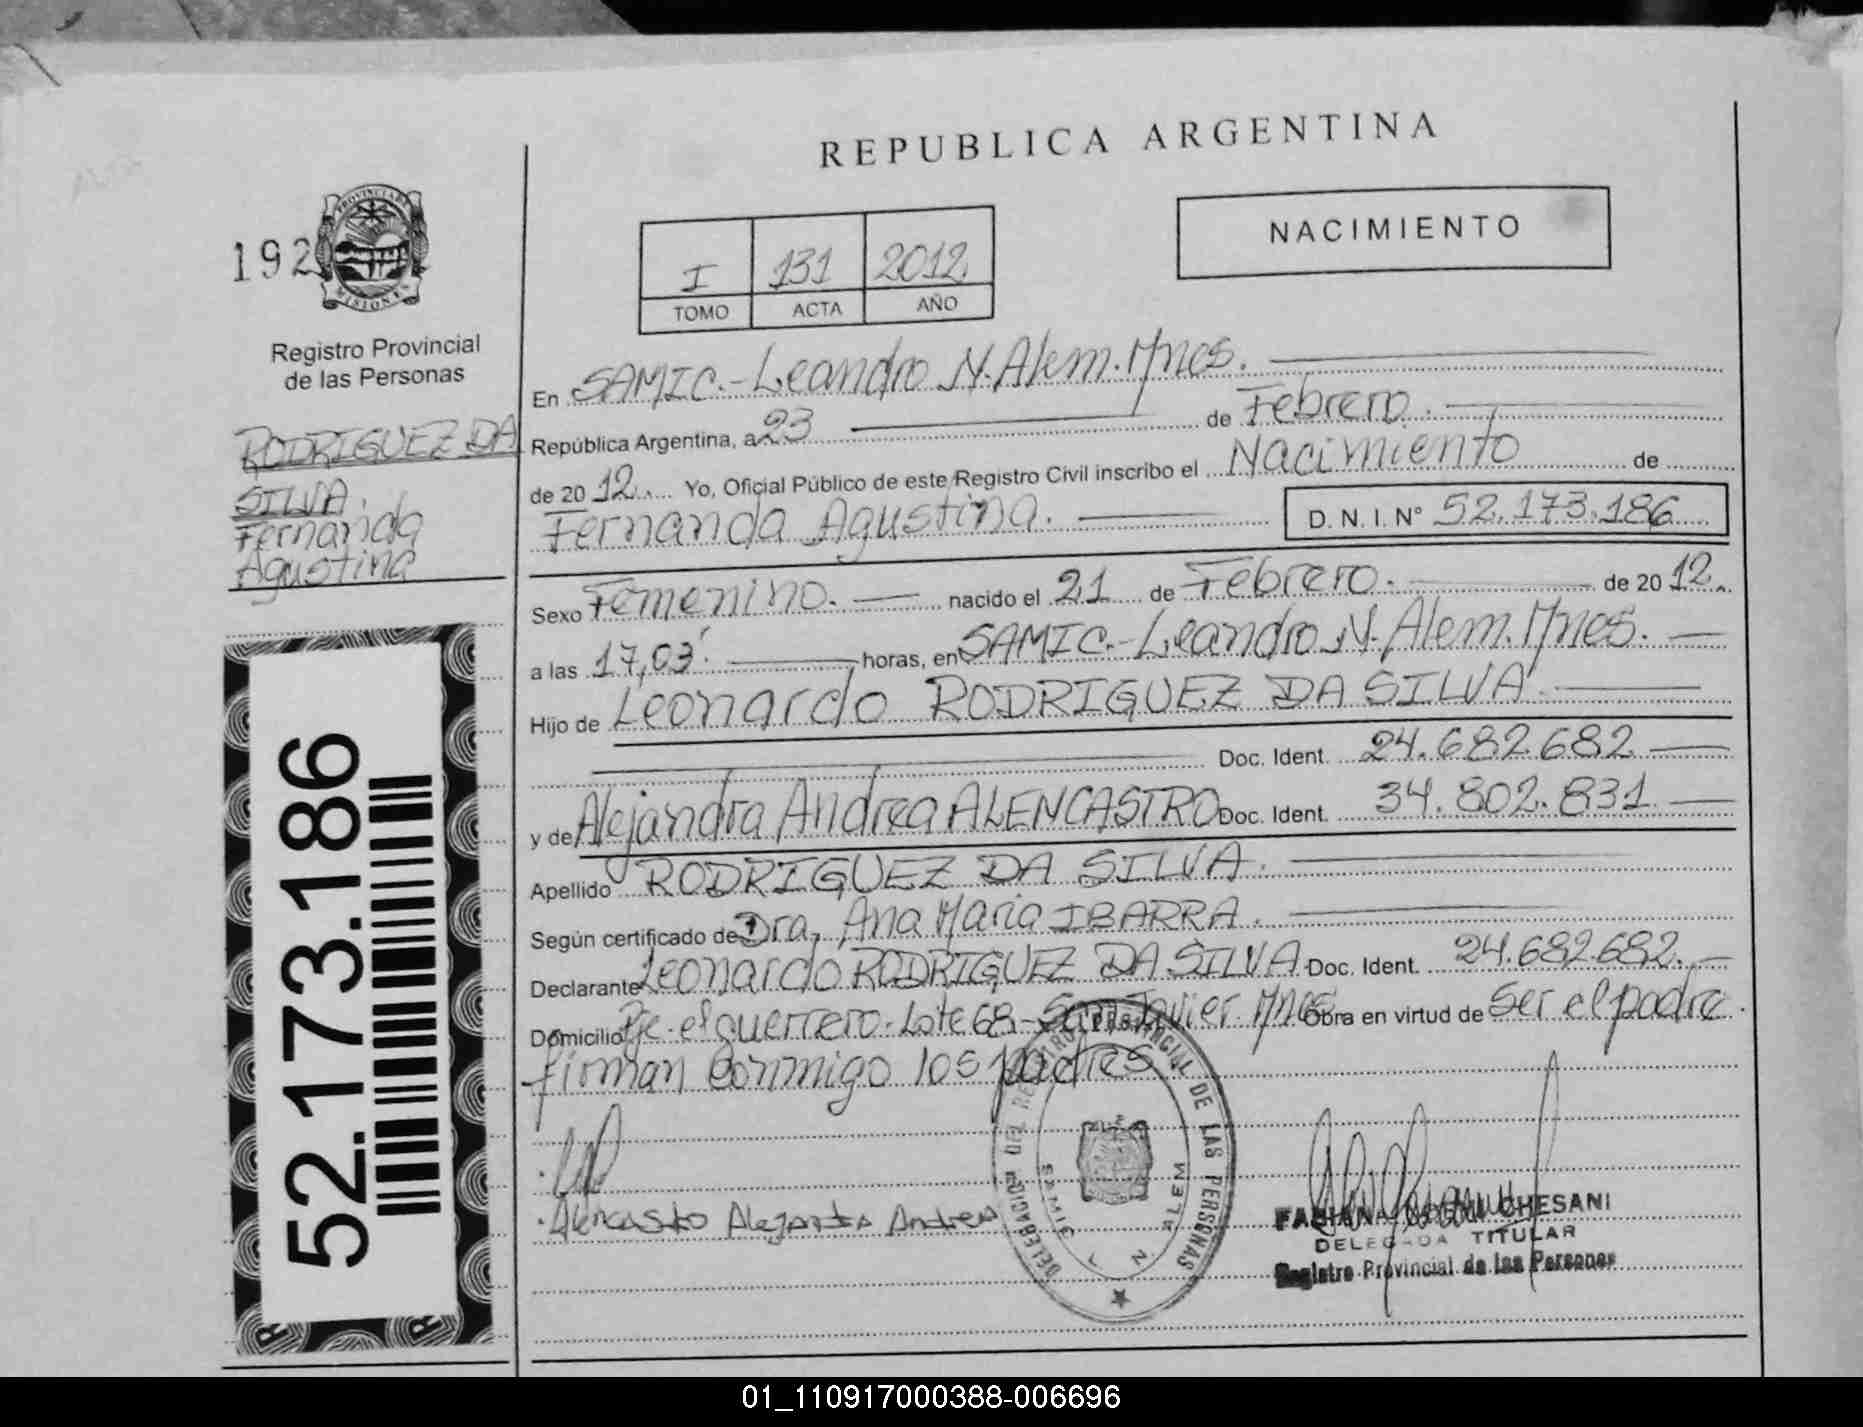 REPUBLICA ARGENTINA
192
PROVINCIA DE
MISIONES
Registro Provincial
de las Personas
RODRIGUEZ DA
SILVA.
Fernanda
Agustina
52.173.186
I 131 2012
TOMO ACTA AÑO
NACIMIENTO
En SAMIC.-Leandro N. Alem. Mnes.
República Argentina, a 23 de Febrero.
de 20 12. Yo, Oficial Público de este Registro Civil inscribo el Nacimiento de
Fernanda Agustina. D.N.I. N° 52.173.186
Sexo Femenino. nacido el 21 de Febrero. de 20 12.
a las 17,03'. horas, en SAMIC.-Leandro N. Alem. Mnes.
Hijo de Leonardo RODRIGUEZ DA SILVA.
Doc. Ident. 24.682.682
y de Alejandra Andrea ALENCASTRO Doc. Ident. 34.802.831
Apellido RODRIGUEZ DA SILVA.
Según certificado de Dra, Ana Maria IBARRA.
Declarante Leonardo RODRIGUEZ DA SILVA. Doc. Ident. 24.682.682.
Domicilio Pje. el guerrero. Lote 68.-San Javier. Mnes Obra en virtud de Ser el padre.
firman conmigo los padres
Alencastro Alejandra Andrea
DELEGACION DEL REGISTRO PROVINCIAL DE LAS PERSONAS
SAMIC L. N. ALEM
FABIANA CHESANI
DELEGADA TITULAR
Registro Provincial de las Personas
01_110917000388-006696